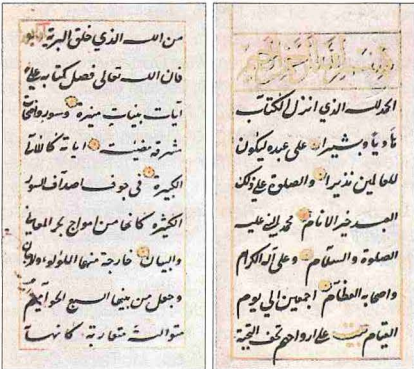 بسم الله الرحمن الرحيم
الحمد لله الذي انزل الكتاب
على عبده ليكون
للعالمين نذيرا والصلوة على ذلك
خير الانام محمد عليه
الصلوة والسلام وعلى آله الكرام
واصحابه العظام اجمعين الى يوم
القيام على ارواحهم تحف التحية
من الله الذي خلق البرية
فان الله تعالى فصل كتابه على
آيات بينات منيرة وسور
مشرقة مضيئة
الكبيرة في جوف اصداف السور
الكثيرة كانها من امواج بحر المعاني
والبيان خارجة منها اللؤلؤ
وجعل من بينها السبع الحواميم
متوالية متقاربة كانها